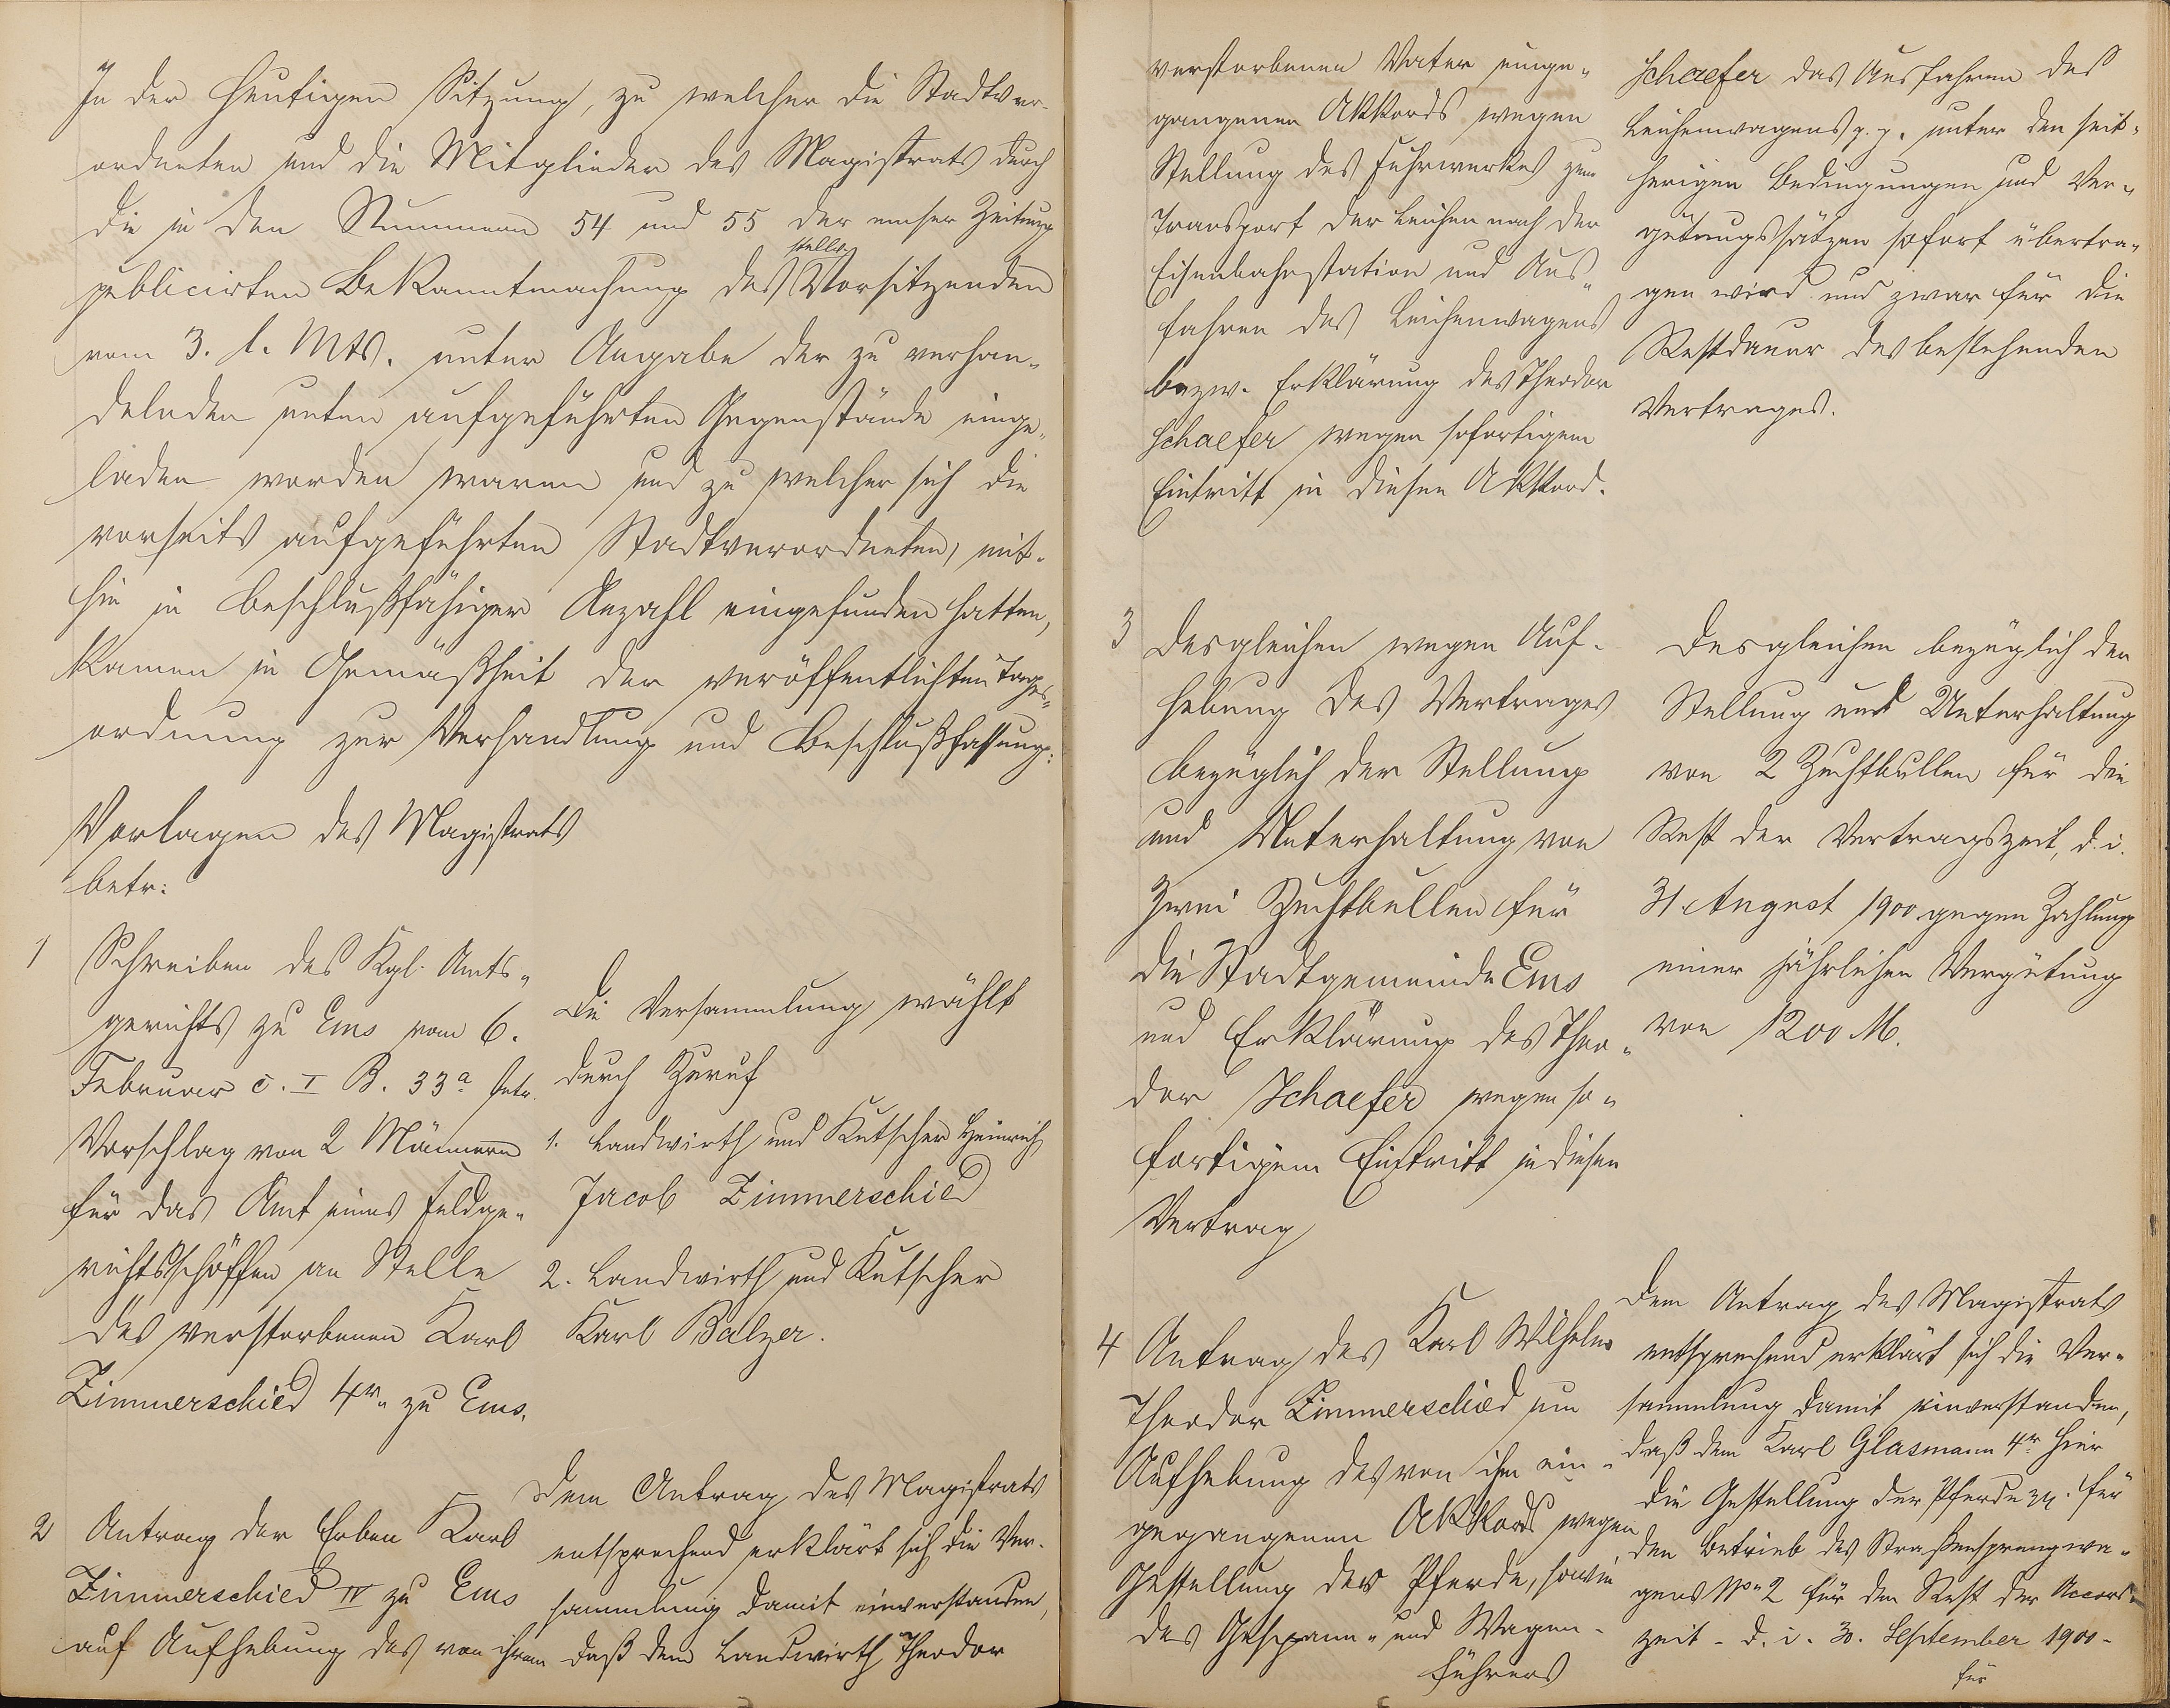 In der heutigen Sitzung, zu welcher die Stadtver-
ordneten und die Mitglieder des Magistrats durch
die in den Nummern 54 und 55 der emser Zeitung
publicirten Bekanntmachung des stellv. Vorsitzenden
vom 3. l. Mts. unter Angabe der zu verhan-
delnden unten aufgeführten Gegenstände einge-
laden worden waren und zu welcher sich die
vorseits aufgeführten Stadtverordneten, mit-
hin in beschlußfähiger Anzahl eingefunden hatten,
kamen in Gemäßheit der veröffentlichten Tages-
ordnung zur Verhandlung und Beschlußfassung:
Vorlagen des Magistrats
betr:
1 Schreiben des Kgl. Amts-
gerichts zu Ems vom 6.
Februar c. I B. 33a betr.
Vorschlag von 2 Männern
für das Amt eines Feldge-
richtsschöffen an Stelle
des verstorbenen Karl
Zimmerschied 4r. zu Ems.
Die Versammlung wählt
durch Zuruf
1. Landwirth und Kutscher Heinrich
Jacob Zimmerschied
2. Landwirth und Kutscher
Karl Balzer.
2 Antrag der Erben Karl
Zimmerschied IV zu Ems
auf Aufhebung des von ihrem
Dem Antrag des Magistrats
entsprechend erklärt sich die Ver-
sammlung damit einverstanden,
daß dem Landwirth Theodor
verstorbenen Vater einge-
gangenen Akkords wegen
Stellung des Fuhrwerkes zum
Transport der Leichen nach der
Eisenbahnstation und Aus-
fahren des Leichenwagens
bezw. Erklärung des Theodor
Schaefer wegen sofortigem
Eintritt in diesen Akkord.
Schaefer das Ausfahren des
Leichenwagens p. p. unter den seit-
herigen Bedingungen und Ver-
gütungssätzen sofort übertra-
gen wird und zwar für die
Restdauer des bestehenden
Vertrages.
3 Desgleichen wegen Auf-
hebung des Vertrages
bezüglich der Stellung
und Unterhaltung von
zwei Zuchtbullen für
die Stadtgemeinde Ems
und Erklärung des Theo-
dor Schaefer wegen so-
fortigem Eintritt in diesen
Vertrag
Desgleichen bezüglich der
Stellung und Unterhaltung
von 2 Zuchtbullen für die
Rest der Vertragszeit, d. i.
31. August 1900 gegen Zahlung
einer jährlichen Vergütung
von 1200 M.
4 Antrag des Karl Wilhelm
Theodor Zimmerschied um
Aufhebung des von ihm ein-
gegangenen Akkords wegen
Gestellung der Pferde, sowie
des Gespann- und Wagen-
führers
Dem Antrag des Magistrats
entsprechend erklärt sich die Ver-
sammlung damit einverstanden,
daß dem Karl Glasmann 4r hier
die Gestellung der Pferde pp. für
den Betrieb des Straßensprengwa-
gens No 2 für den Rest der Accord-
zeit - d. i. 30. September 1900 -
für